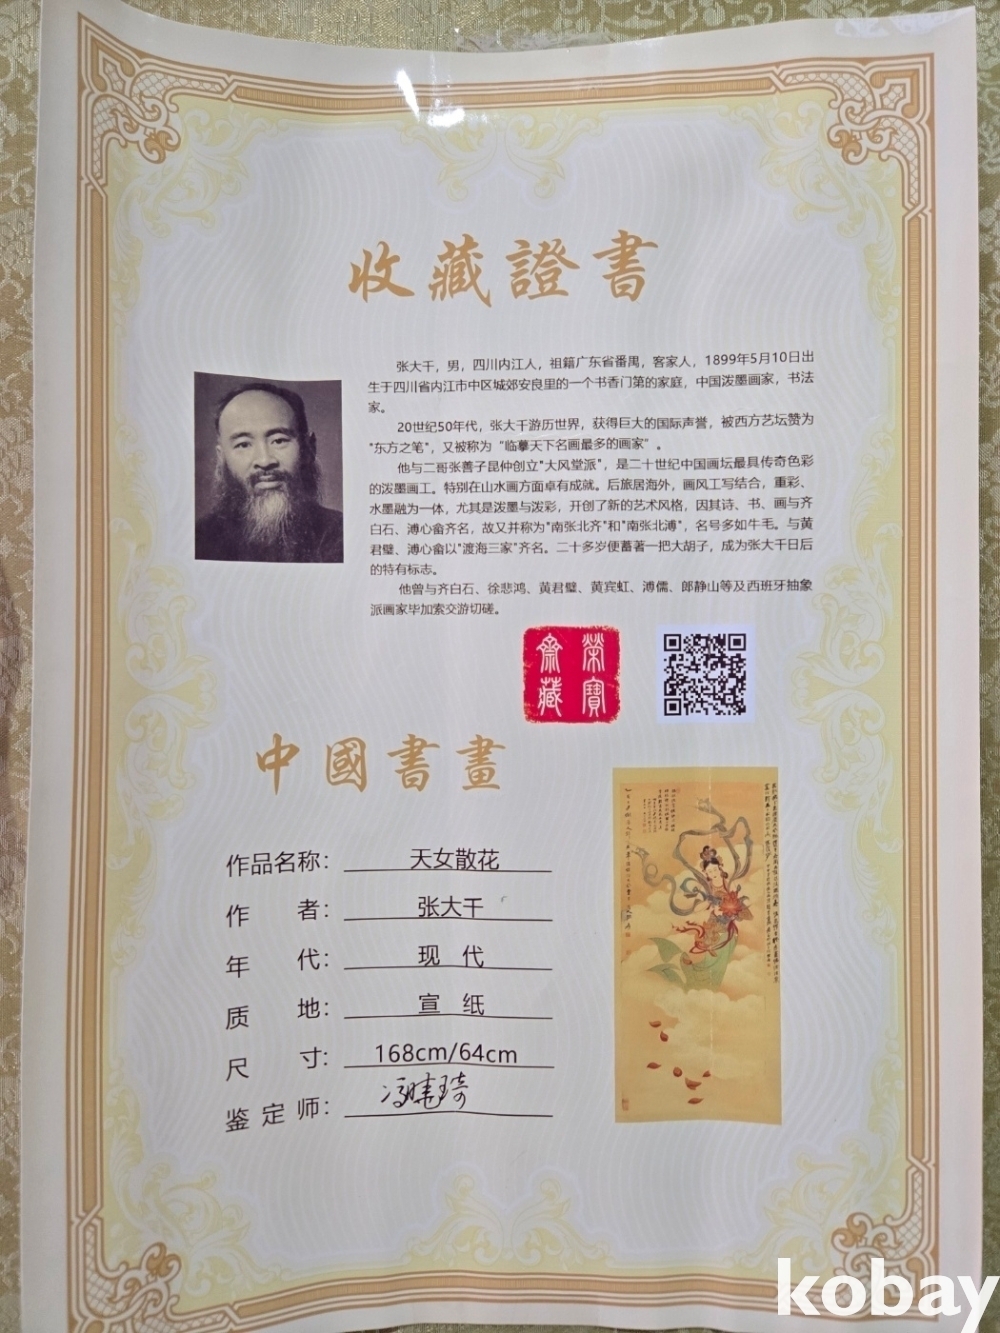 收藏證書
张大千，男，四川内江人，祖籍广东省番禺，客家人，1899年5月10日出
生于四川省内江市中区城郊安良里的一个书香门第的家庭，中国泼墨画家，书法
家。
20世纪50年代，张大千游历世界，获得巨大的国际声誉，被西方艺坛赞为
"东方之笔"，又被称为“临摹天下名画最多的画家”。
他与二哥张善子昆仲创立"大风堂派"，是二十世纪中国画坛最具传奇色彩
的泼墨画工。特别在山水画方面卓有成就。后旅居海外，画风工写结合，重彩、
水墨融为一体，尤其是泼墨与泼彩，开创了新的艺术风格，因其诗、书、画与齐
白石、溥心畲齐名，故又并称为"南张北齐"和"南张北溥"，名号多如牛毛。与黄
君璧、溥心畲以"渡海三家"齐名。二十多岁便蓄著一把大胡子，成为张大千日后
的特有标志。
他曾与齐白石、徐悲鸿、黄君璧、黄宾虹、溥儒、郎静山等及西班牙抽象
派画家毕加索交游切磋。
榮寶
齋藏
中國書畫
作品名称：天女散花
作者：张大千
年代：现代
质地：宣纸
尺寸：168cm/64cm
鉴定师：
kobay